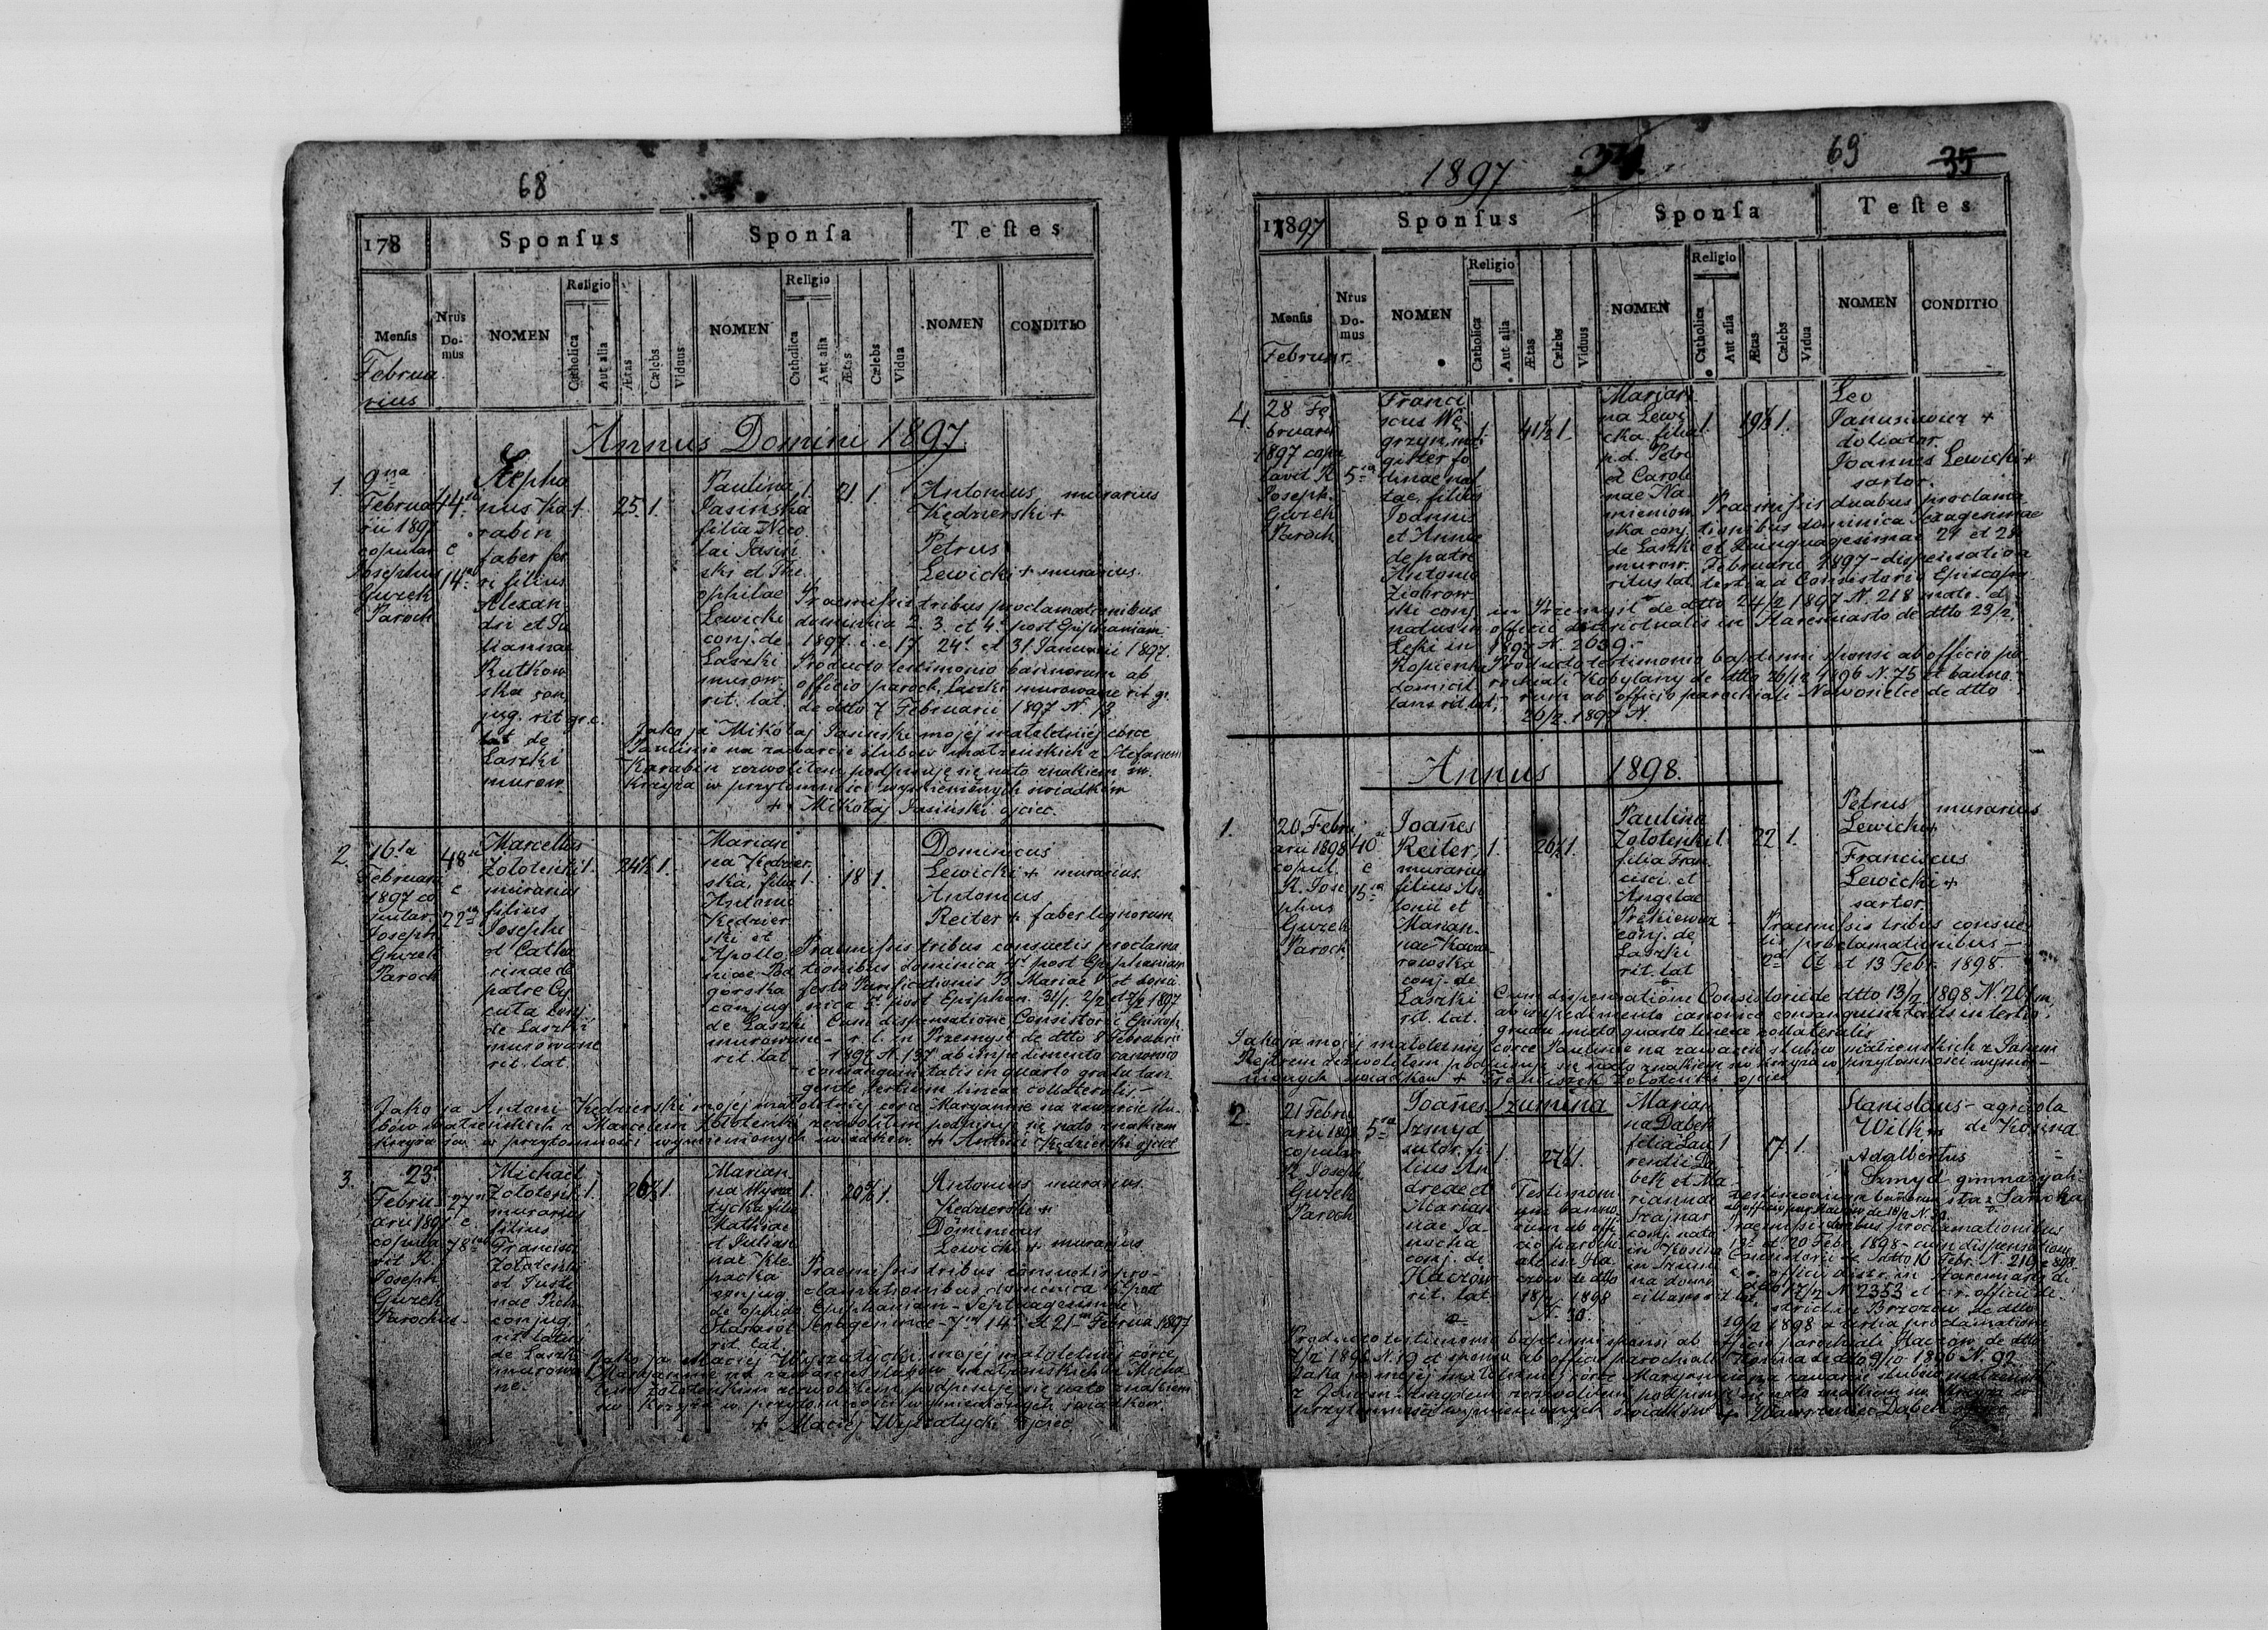 68
178
Sponſus
Sponſa
Teſtes
Menſis
Februa
rius
Nrus
Do-
mus
NOMEN
Religio
Catholica
Aut alia
Ætas
Cælebs
Viduus
NOMEN
Religio
Catholica
Aut alia
Ætas
Cælebs
Vidua
NOMEN
CONDITIO
Annus Domini 1897
1.
9na
Februa
rii 1897
copular
Josephus
Gwzek
Paroch
44
c
14
Stepha
nus Ka
rabin
faber fer
ri filius
Alexan
dri et Ju
liannae
Rutkow
ska con
jug. rit gr. c.
de
Laszki
murow
1.
25. 1.
Paulina
Jasińska
filia Nico
lai Jasiń
ski et The
ophilae
Lewicki
conj. de
Laszki
murow.
rit. lat.
1.
21. 1.
Antonius murarius
Kędzierski +
Petrus
Lewicki + murarius.
Praemissis tribus proclamationibus
dominica 2. 3. et 4. post Epiphaniam
1897 i. e 17. 24. et 31. Januarii 1897.
Producto testimonio bannorum ab
officio paroch. Laszki murowane rit gr.
de dtto 7 Februarii 1897 N. 13
Jako ja Mikołaj Jasiński mojej małoletniej córce
Paulinie na zawarcie ślubów małżeńskich z Stefanem
Karabin zezwoliłem podpisuję się na to znakiem św.
Krzyża w przytomności wymienionych świadków
+ Mikołaj Jasiński ojciec.
2.
16ta
Februarii
1897 co
pular.
Joseph
Gwzek
Paroch
48
c
22
Marcellus
Zołoteńki
murarius
filius
Josephi
et Catha
rinae de
patre Cy
cuta conj.
de Laszki
murowane
rit. lat.
1.
24 1.
Marian
na Kędzier
ska, filia
Antoni
Kędzier
ski et
Apollo
niae Pod
górska
conjug
de Laszki
murowane
rit. lat.
1.
18 1.
Dominicus
Lewicki + murarius.
Antonius
Reiter + faber lignorum
Praemissis tribus consuetis proclama
tionibus dominica 4. post Epiphaniam
festo Purificationis B. Mariae V. et domi
nica 5. post Epiphan. 31/1. 2/2 et 7/2 1897
Cum dispensatione Consistorii Episcop.
r. l. in Przemyśl de dtto 8 Februarii
1897 N. 137 ab impedimento canonico
consanguinitatis in quarto gradu tan
gente tertium lineae collateralis.
Jako ja Antoni Kędzierski mojej małoletniej córce Maryannie na zawarcie ślu-
bów małżeńskich z Marcelem Zołoteńki zezwoliłem podpisuję się na to znakiem
krzyża św. w przytomności wymienionych świadków + Antoni Kędzierski ojciec
3.
23
Febru
arii 1897
copula
vit R.
Joseph
Gwzek
Parochus
27
c.
78
Michael
Zołoteńki
murarius
filius
Francisci
Zołoteńki
et Juste
nae Reh
conjug.
rit latini
de Laszki
murowa
ne.
1.
26 1.
Marian
na Wysza
tycka filia
Mathiae
et Julian
nae Kle
packa
conjug
de oppido
Starasól
rit. lat.
1.
20 1.
Antonius murarius
Kędzierski +
Dominicus
Lewicki + murarius
Praemissis tribus consuetis pro-
clamationibus dominica 5. post
Epiphaniam - Septuagesimae
Sexagesimae - 7. 14. et 21. Februa. 1897
Jako ja Maciej Wyszatycki mojej małoletniej córce
Maryannie na zawarcie ślubów małżeńskich z Micha
łem Zołoteńkim zezwoliłem podpisuję się na to znakiem
św Krzyża w przytomności wymienionych świadków.
+ Maciej Wyszatycki ojciec
1897
34.
69
35
1897
Sponſus
Sponſa
Teſtes
Menſis
Februar.
Nrus
Do-
mus
NOMEN
Religio
Catholica
Aut alia
Ætas
Cælebs
Viduus
NOMEN
Religio
Catholica
Aut alia
Ætas
Cælebs
Vidua
NOMEN
CONDITIO
4.
28 Fe
bruarii
1897 copu
lavit R.
Joseph.
Gwzek
Paroch
5
Franci
scus Wę
grzyn, ma
gister fo
dinae naf
tae, filius
Joannis
et Annae
de patre
Antonio
Ziobrow
ski conj.
natus in
Łęki in
Kopienka
domicil.
lans rit. lat.
1.
41 1.
Marian
na Lewi
cka filia
p. d. Petri
et Caroli
nae Ka
mieniow
ska conj
de Laszki
murow.
ritus lat.
1.
19 1.
Leo
Janusiewicz +
doliator.
Joannes Lewicki +
sartor.
Praemissis duabus proclama
tionibus dominica Sexagesimae
et Quinquagesimae 21 et 28
Februarii 1897 - dispensatione
tertia a Consistorio Episcopo
in Przemyśl de dtto 24/2 1897 N. 218
officii districtualis in Staremiasto de dtto 23/2
1897 N. 2639.
Producto testimonio baptismi sponsi ab officio pa
rochiali Kobylany de dtto 26/12 1896 N. 75 et banno
rum ab officio parochiali Nowosielce de dtto
26/2. 1897 N.
Annus 1898.
1.
20 Febru
arii 1898
copul.
R. Jose
phus
Gwzek
Paroch
40
c
15
Joañes
Reiter,
murarius
filius An
tonii et
Marian-
nae Kawa
rowska
conj. de
Laszki
rit. lat.
1.
26 1.
Paulina
Zołoteńki
filia Fran
cisci et
Angelae
conj. de
Laszki
rit. lat
1.
22 1.
Petrus murarius
Lewicki +
Franciscus
Lewicki +
sartor.
Praemissis tribus consue
tis proclamationibus -
2. 6. et 13 Febr. 1898.
Cum dispensatione Consistorii de dtto 13/2 1898 N. 201
ab impedimento canonico consanguinitatis in tertio
gradu mixto quarto lineae collateralis
Jako ja mojej małoletniej córce Paulinie na zawarcie ślubów małżeńskich z Janem
Rejtrem zezwoliłem podpisuję się na to znakiem św krzyża w przytomności wymie-
nionych świadków + Franciszek Zołoteńki ojciec
2.
21 Febru
arii 1898
copulav
R. Joseph
Gwzek
Paroch
5
Joañes Szumina
Szmyd
sutor fi
lius An
dreae et
Marian
nae Ja-
nocha
conj. de
Haczów
rit. lat.
1.
27 1.
Testimon
ium banno
rum ab offi
cio parochi
ali in Ha
czów de dtto
18/2 1898
N. 30.
Marian
na Dąbek
filia Lau
rentii Dą
bek et Ma
riannae
Szajnar
conj. nata
in Kosina
in Szumi
na domi
cilians rit lat.
1
17 1.
Stanislaus - agricola
Wilk + de Kosina
Adalbertus
Szmyd gimnazyali-
sta z Sanoka
Testimonium bannorum
Praemissis duabus proclamationibus
13 et 20 Febr. 1898 - cum dispensatione
Consistorii de dtto 16 Febr. N. 219 1898
c. r. officii distr. in Staremiasto de
dtto 17/2 N. 2353 et c. r. officii di-
strict. in Brzozów de dtto
19/2 1898 a tertia proclamatione
Producto testimonio baptismi sponsi ab officio parochiali Haczów de dtto
7/2 1898 N. 19 et sponsa ab officio parochiali Kosina de dtto 9/10 1896 N. 92
Jako ja mojej małoletniej córce Maryannie na zawarcie ślubów małżeńsk
z Janem Szmydem zezwoliłem podpisuję się na to znakiem św. Krzyża w
przytomności wymienionych świadków + Wawrzyniec Dąbek ojciec